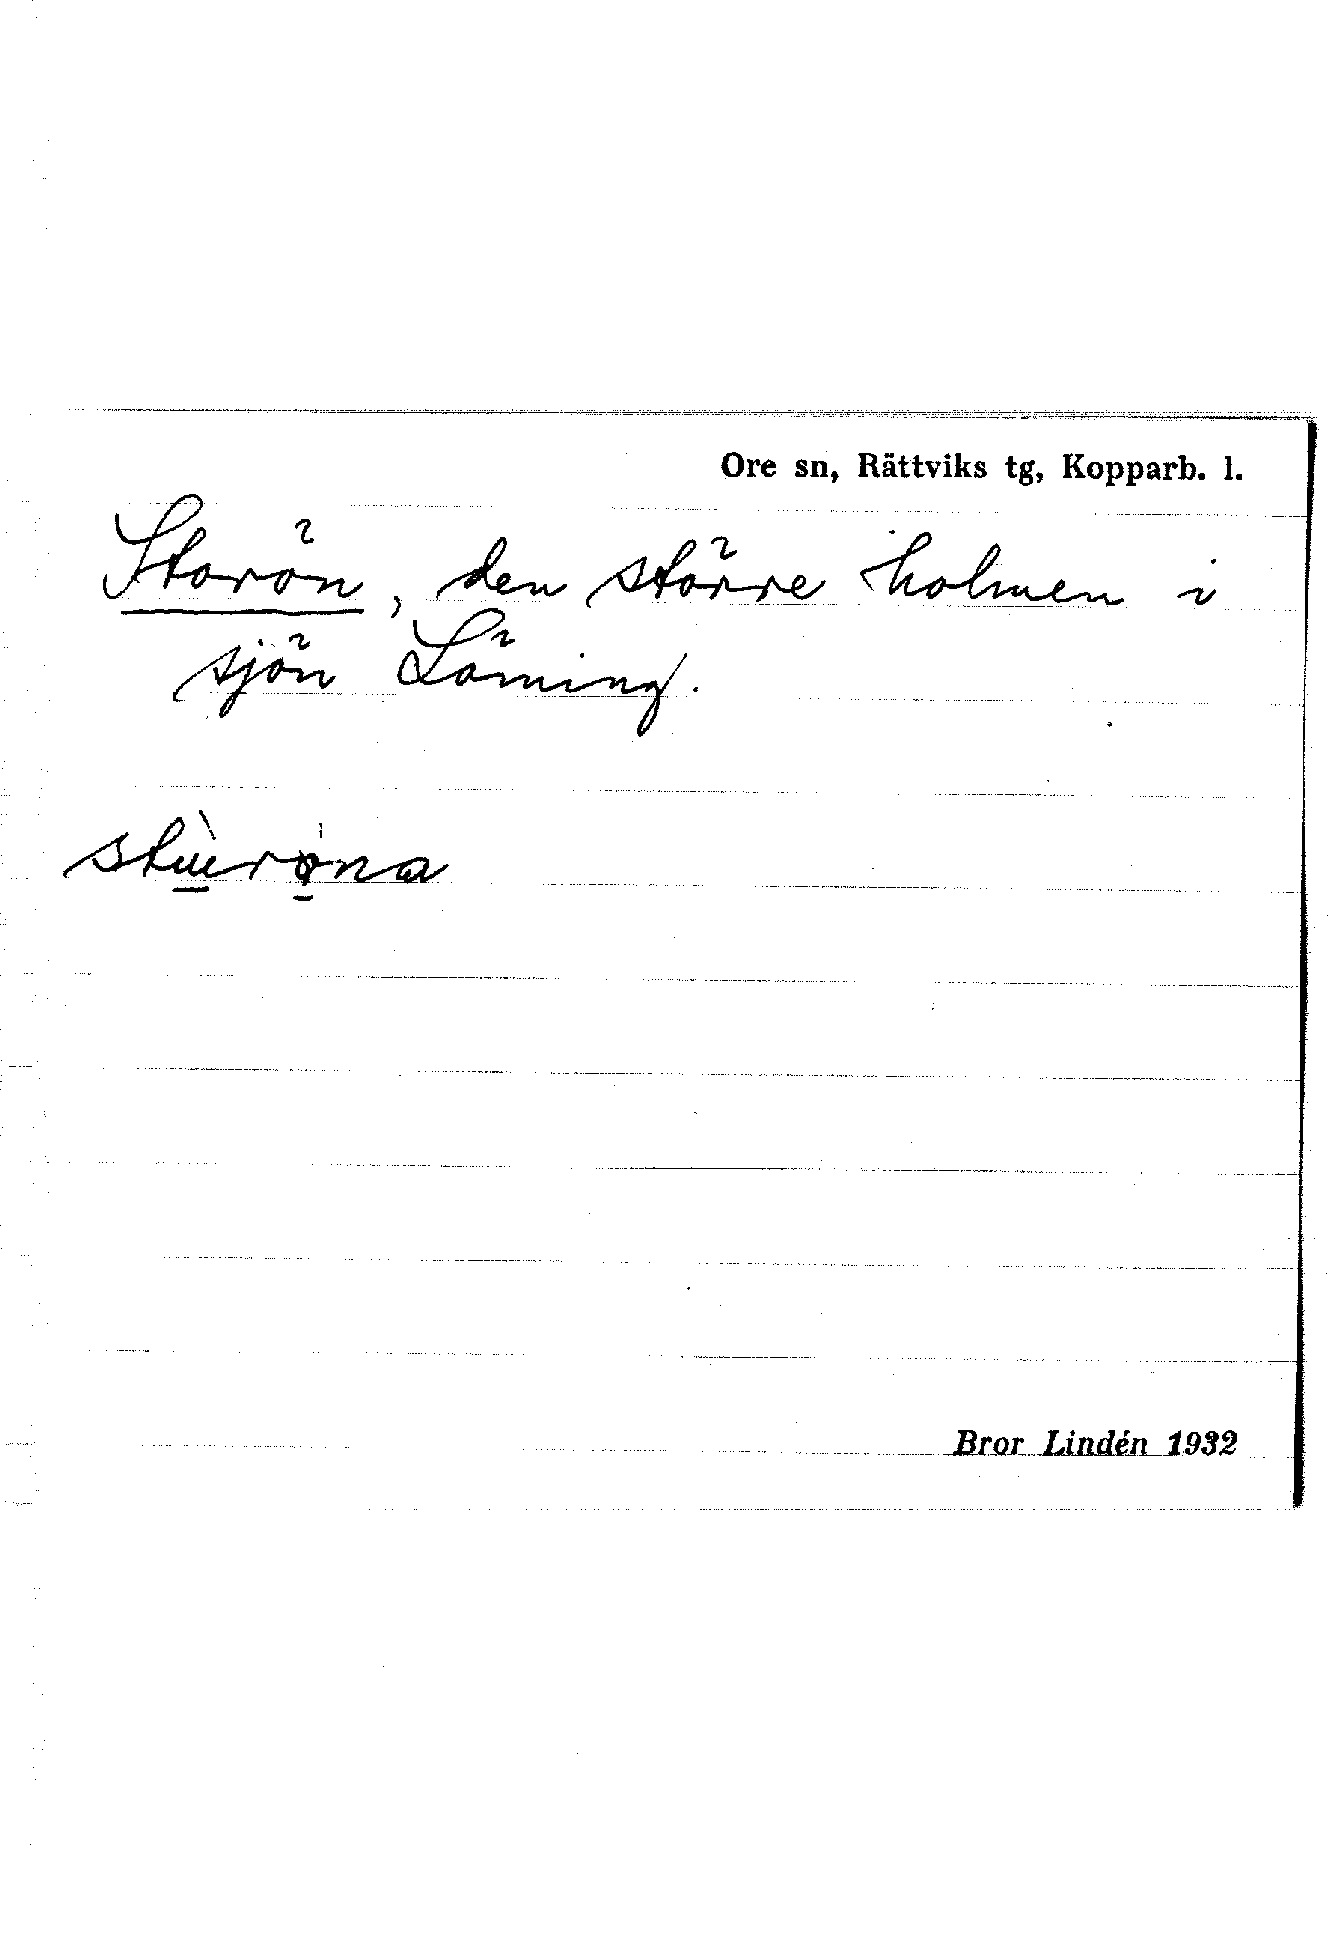 Ore sn, Rättviks tg, Kopparb. l.
Storön, den större holmen i
sjön Löning.
Bror Lindén 1932